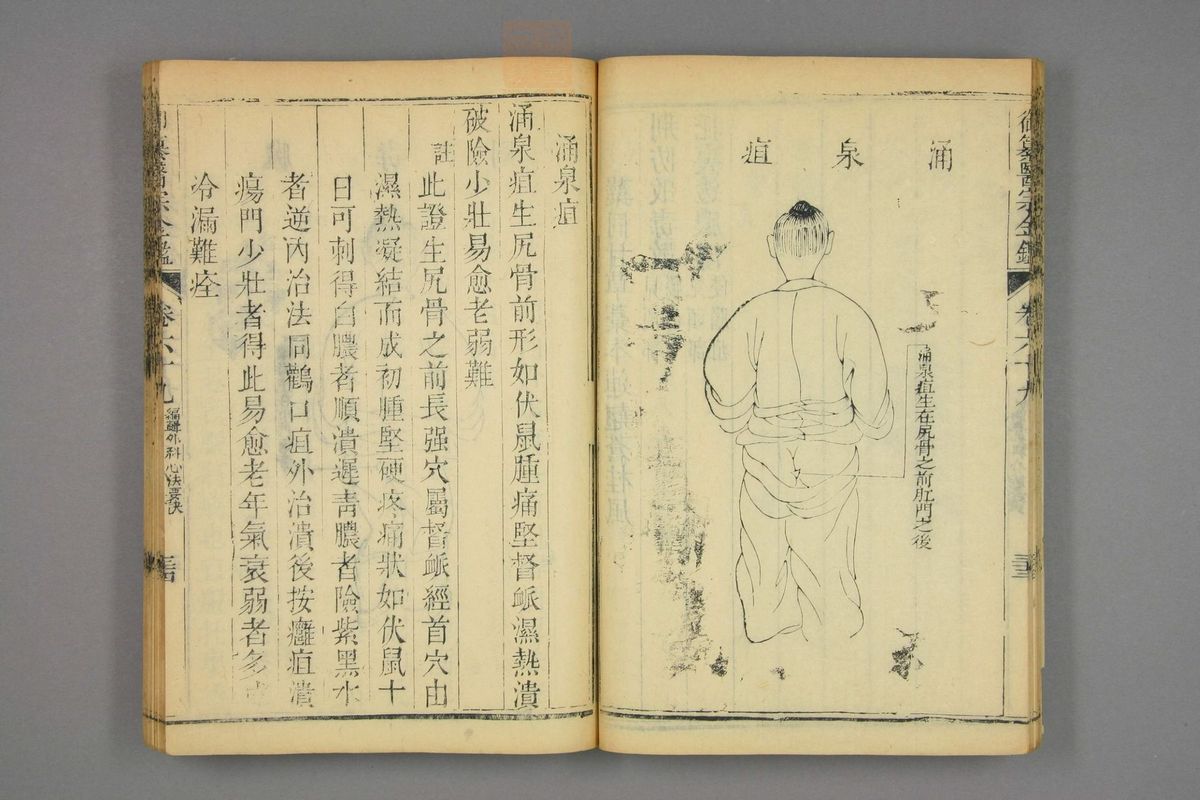 御纂醫宗金鑑
卷六十九
涌泉疽
涌泉疽生在尻骨之前肛門之後
涌泉疽
涌泉疽生尻骨前形如伏鼠腫痛堅督脈濕熱潰
破險少壯易愈老弱難
註此證生尻骨之前長强穴屬督脈經首穴由
濕熱凝結而成初腫堅硬疼痛狀如伏鼠十
日可刺得白膿者順潰遲靑膿者險紫黑水
者逆內治法同鸛口疽外治潰後按癰疽潰
瘍門少壯者得此易愈老年氣衰弱者多
冷漏難痊
醫宗金鑑
卷六十九
編輯外科心法要訣